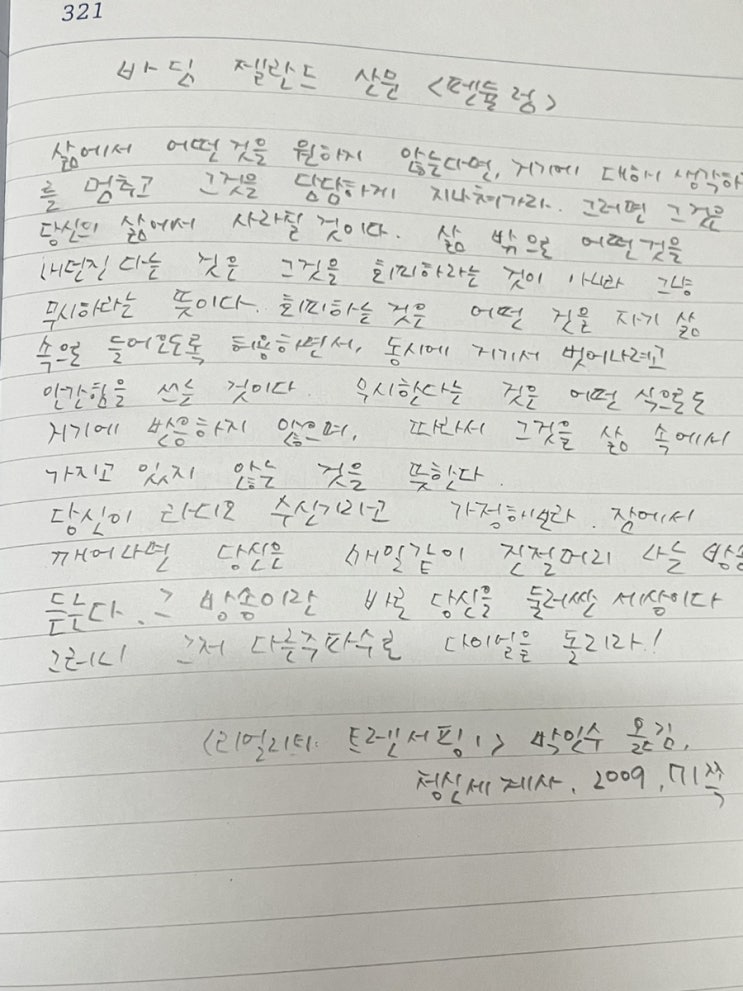 321
바딤 젤란드 산문 <펜듈럼>
삶에서 어떤 것을 원하지 않는다면, 거기에 대해서 생각하
를 멈추고 그것을 담담하게 지나쳐가라. 그러면 그것은
당신의 삶에서 사라질 것이다. 삶 밖으로 어떤 것을
내던진다는 것은 그것을 회피하라는 것이 아니라 그냥
무시하라는 뜻이다. 회피하는 것은 어떤 것을 자기 삶
속으로 들어오도록 허용하면서, 동시에 거기서 벗어나려고
안간힘을 쓰는 것이다. 무시한다는 것은 어떤 식으로도
거기에 반응하지 않으며, 따라서 그것을 삶 속에서
가지고 있지 않는 것을 뜻한다.
당신이 라디오 수신기라고 가정해보라. 잠에서
깨어나면 당신은 매일같이 진절머리 나는 방송
듣는다. 그 방송이란 바로 당신을 둘러싼 세상이다
그러니 그저 다른 주파수로 다이얼을 돌리라!
<리얼리티 트랜서핑1> 박인수 옮김,
정신세계사, 2009, 71쪽